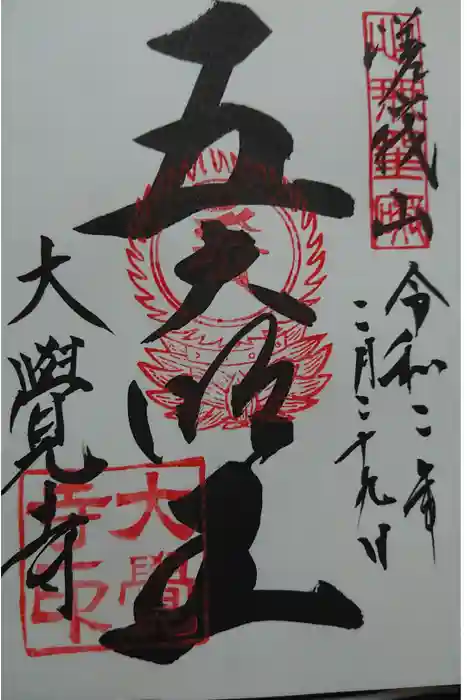 嵯峨山
令和二年
二月二十九日
五大明王
大覺寺
大覺
寺印